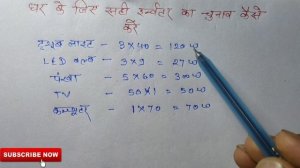 घर के लिए सही इन्वर्टर का चुनाव कैसे
करें
ट्यूब लाइट - 3×40 = 120 w
LED बल्ब - 3×9 = 27w
पंखा - 5×60 = 300w
TV - 50×1 = 50w
कम्प्यूटर - 1×70 = 70w
SUBSCRIBE NOW